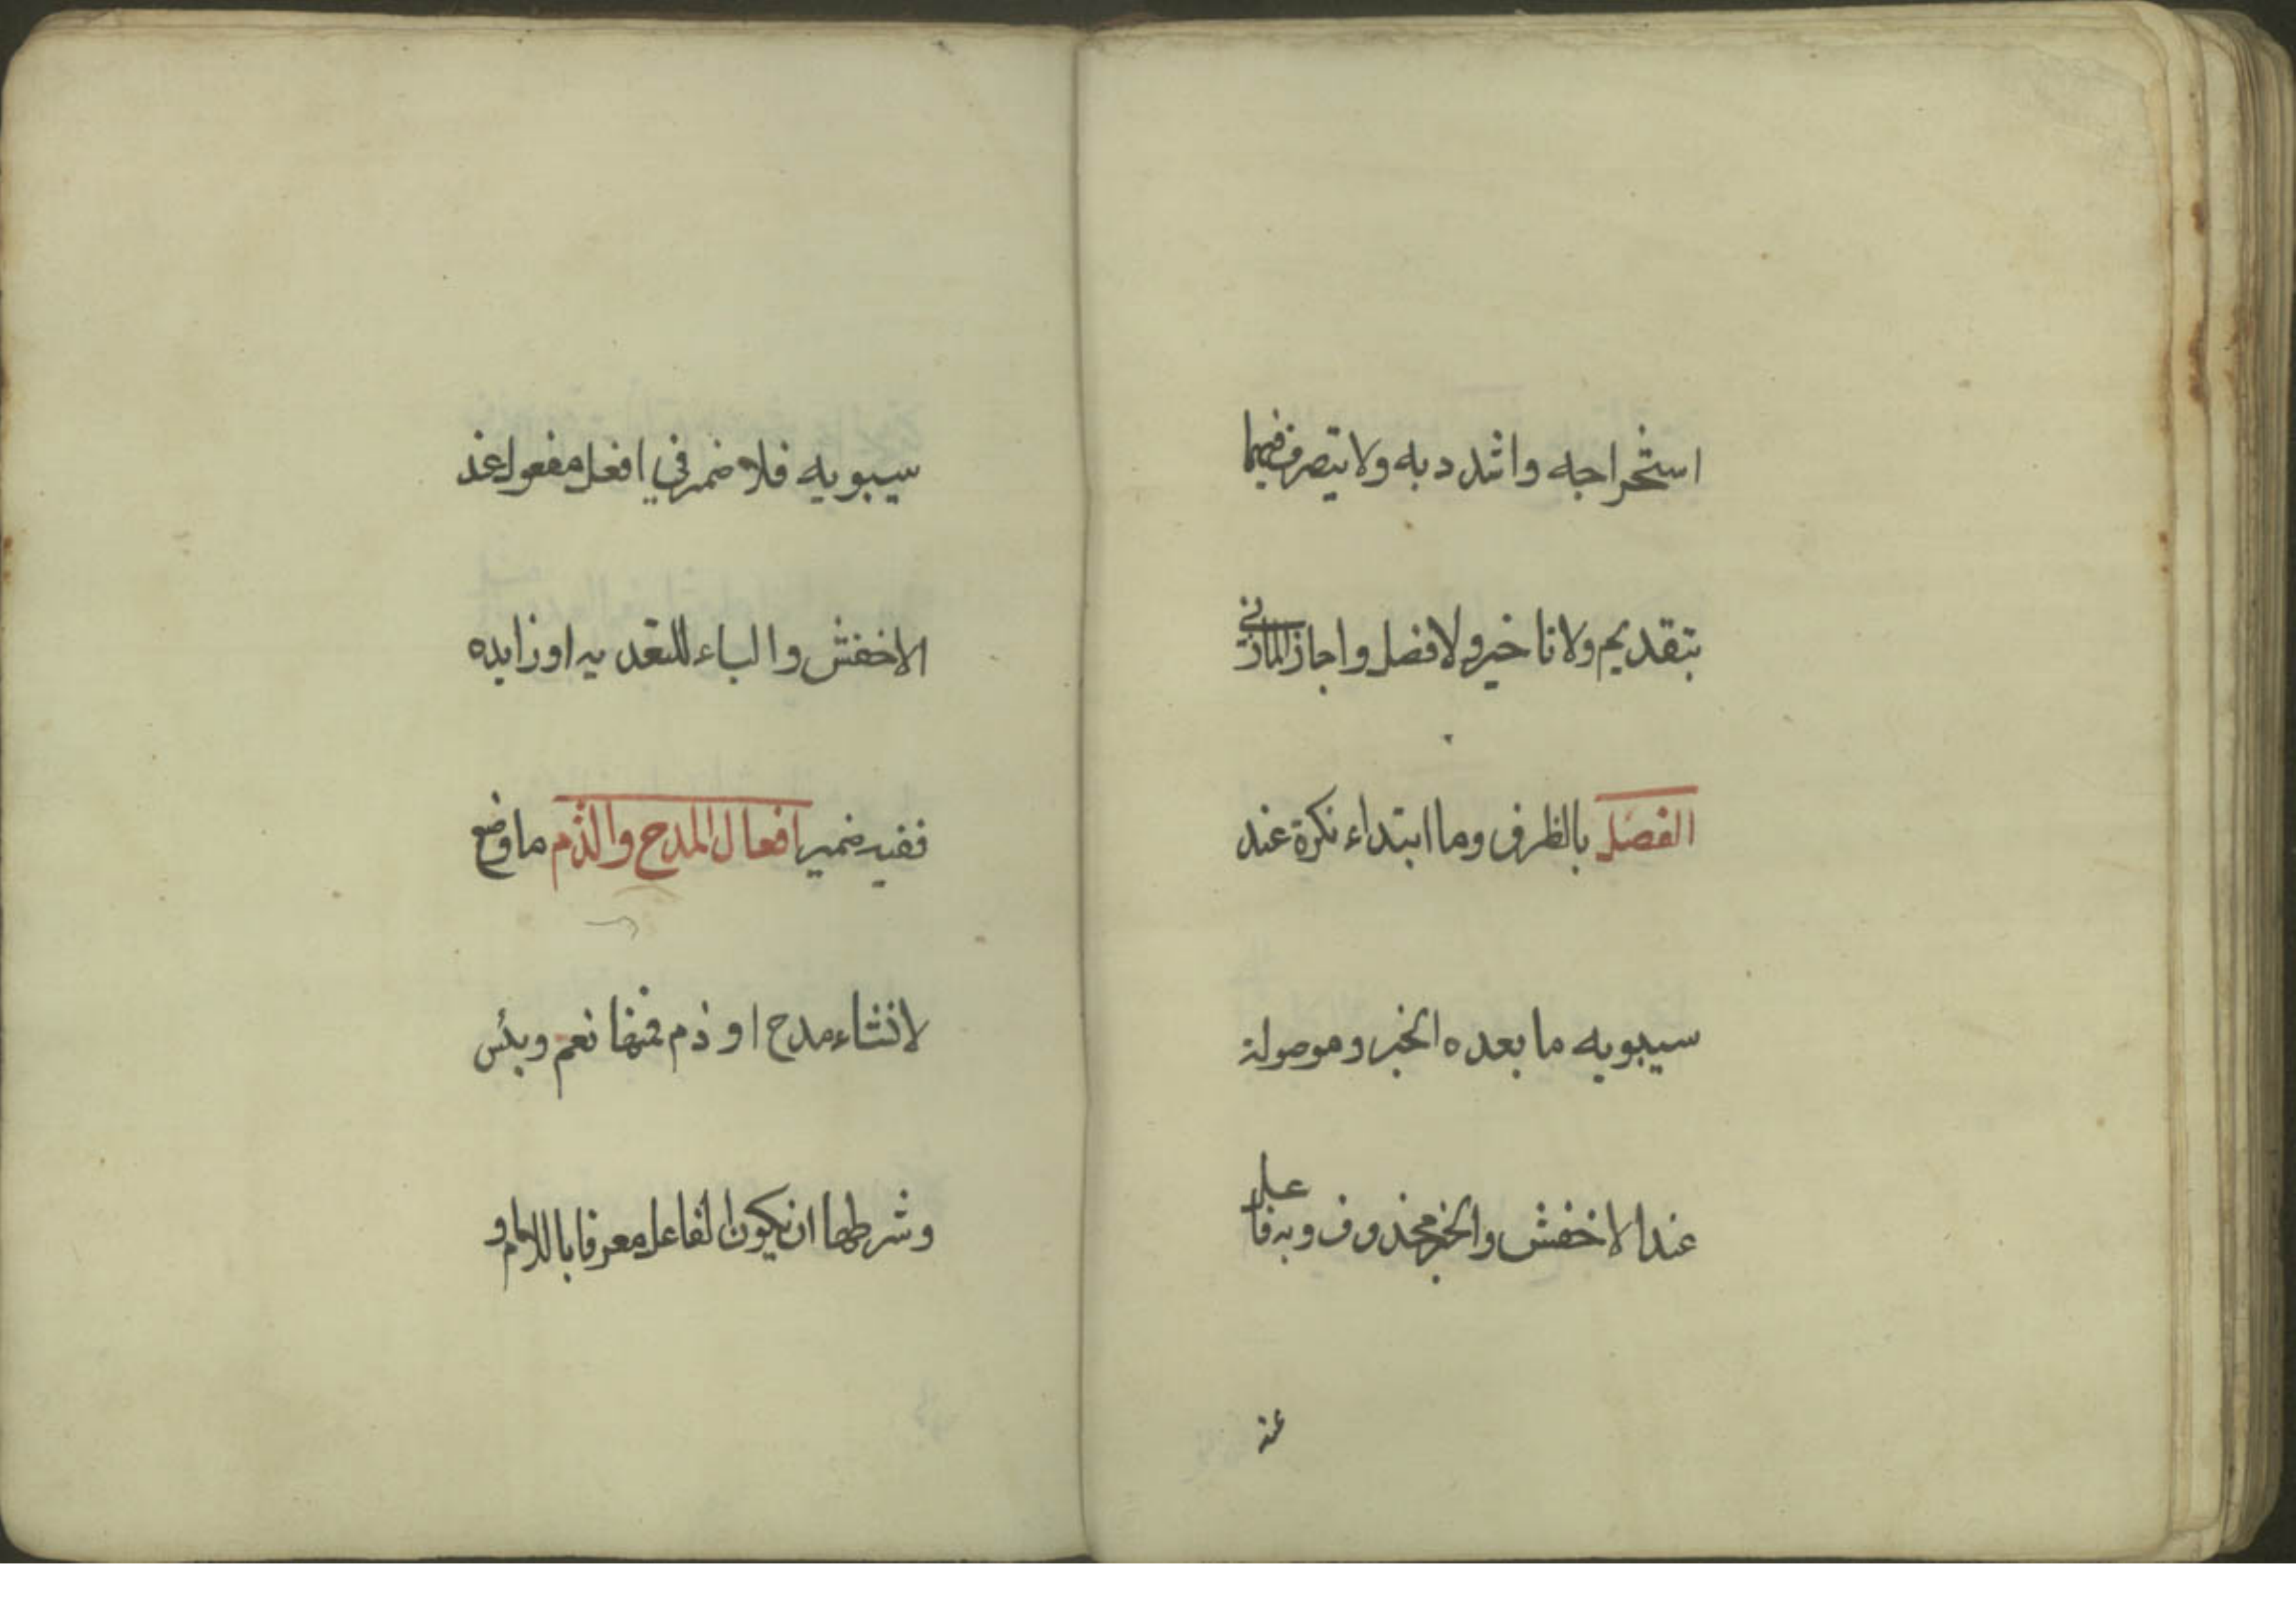 استخراجه واشدد به ولا يتصرف فيهما
بتقديم ولا تاخير ولا فصل واجاز المازني
الفصل بالظرف وما ابتداء نكرة عند
سيبويه ما بعده الخبر وموصولة
عند الاخفش والخبر محذوف وبه فاعل
عند
سيبويه فلا ضمر في افعل مفعول عند
الاخفش والباء للتعديه او زايده
ففيه ضمير افعال المدح والذم ما وضع
لانشاء مدح او ذم فمنها نعم وبئس
وشرطهما ان يكون الفاعل معرفا باللام او